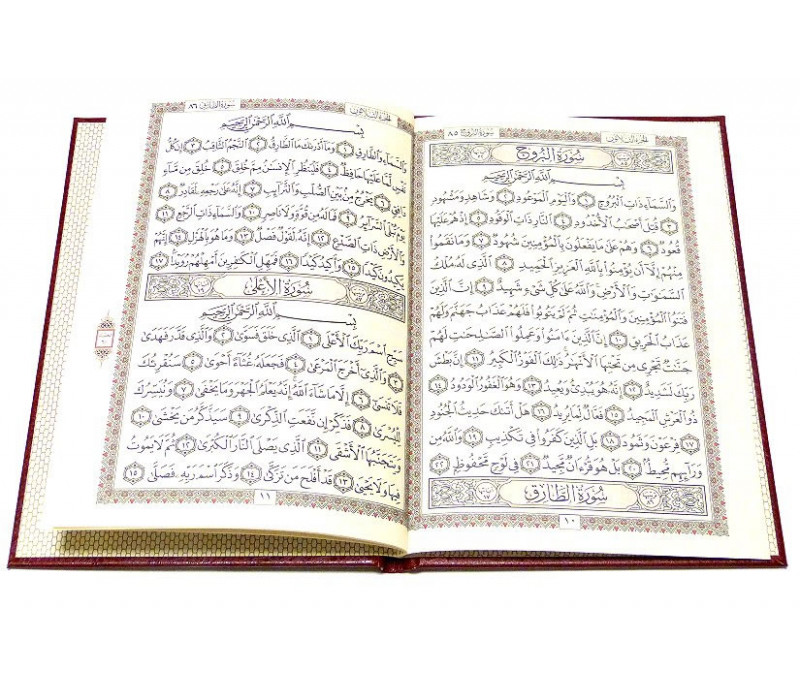 الجزء الثلاثون سورة البروج ٨٥
سُورَةُ البُرُوجِ
بِسْمِ ٱللَّهِ ٱلرَّحْمَٰنِ ٱلرَّحِيمِ
وَٱلسَّمَآءِ ذَاتِ ٱلْبُرُوجِ ١ وَٱلْيَوْمِ ٱلْمَوْعُودِ ٢ وَشَاهِدٍ وَمَشْهُودٍ
٣ قُتِلَ أَصْحَٰبُ ٱلْأُخْدُودِ ٤ ٱلنَّارِ ذَاتِ ٱلْوَقُودِ ٥ إِذْ هُمْ عَلَيْهَا
قُعُودٌ ٦ وَهُمْ عَلَىٰ مَا يَفْعَلُونَ بِٱلْمُؤْمِنِينَ شُهُودٌ ٧ وَمَا نَقَمُوا۟
مِنْهُمْ إِلَّآ أَن يُؤْمِنُوا۟ بِٱللَّهِ ٱلْعَزِيزِ ٱلْحَمِيدِ ٨ ٱلَّذِى لَهُۥ مُلْكُ
ٱلسَّمَٰوَٰتِ وَٱلْأَرْضِ وَٱللَّهُ عَلَىٰ كُلِّ شَىْءٍ شَهِيدٌ ٩ إِنَّ ٱلَّذِينَ
فَتَنُوا۟ ٱلْمُؤْمِنِينَ وَٱلْمُؤْمِنَٰتِ ثُمَّ لَمْ يَتُوبُوا۟ فَلَهُمْ عَذَابُ جَهَنَّمَ وَلَهُمْ
عَذَابُ ٱلْحَرِيقِ ١٠ إِنَّ ٱلَّذِينَ ءَامَنُوا۟ وَعَمِلُوا۟ ٱلصَّٰلِحَٰتِ لَهُمْ
جَنَّٰتٌ تَجْرِى مِن تَحْتِهَا ٱلْأَنْهَٰرُ ذَٰلِكَ ٱلْفَوْزُ ٱلْكَبِيرُ ١١ إِنَّ بَطْشَ
رَبِّكَ لَشَدِيدٌ ١٢ إِنَّهُۥ هُوَ يُبْدِئُ وَيُعِيدُ ١٣ وَهُوَ ٱلْغَفُورُ ٱلْوَدُودُ ١٤
ذُو ٱلْعَرْشِ ٱلْمَجِيدُ ١٥ فَعَّالٌ لِّمَا يُرِيدُ ١٦ هَلْ أَتَىٰكَ حَدِيثُ ٱلْجُنُودِ
١٧ فِرْعَوْنَ وَثَمُودَ ١٨ بَلِ ٱلَّذِينَ كَفَرُوا۟ فِى تَكْذِيبٍ ١٩ وَٱللَّهُ مِن
وَرَآئِهِم مُّحِيطٌ ٢٠ بَلْ هُوَ قُرْءَانٌ مَّجِيدٌ ٢١ فِى لَوْحٍ مَّحْفُوظٍ ٢٢
سُورَةُ الطَّارِقِ
١٠
الجزء الثلاثون سورة الطارق ٨٦
بِسْمِ ٱللَّهِ ٱلرَّحْمَٰنِ ٱلرَّحِيمِ
وَٱلسَّمَآءِ وَٱلطَّارِقِ ١ وَمَآ أَدْرَىٰكَ مَا ٱلطَّارِقُ ٢ ٱلنَّجْمُ ٱلثَّاقِبُ ٣ إِن كُلُّ
نَفْسٍ لَّمَّا عَلَيْهَا حَافِظٌ ٤ فَلْيَنظُرِ ٱلْإِنسَٰنُ مِمَّ خُلِقَ ٥ خُلِقَ مِن مَّآءٍ
دَافِقٍ ٦ يَخْرُجُ مِنۢ بَيْنِ ٱلصُّلْبِ وَٱلتَّرَآئِبِ ٧ إِنَّهُۥ عَلَىٰ رَجْعِهِۦ لَقَادِرٌ ٨
يَوْمَ تُبْلَى ٱلسَّرَآئِرُ ٩ فَمَا لَهُۥ مِن قُوَّةٍ وَلَا نَاصِرٍ ١٠ وَٱلسَّمَآءِ ذَاتِ ٱلرَّجْعِ ١١
وَٱلْأَرْضِ ذَاتِ ٱلصَّدْعِ ١٢ إِنَّهُۥ لَقَوْلٌ فَصْلٌ ١٣ وَمَا هُوَ بِٱلْهَزْلِ ١٤ إِنَّهُمْ
يَكِيدُونَ كَيْدًا ١٥ وَأَكِيدُ كَيْدًا ١٦ فَمَهِّلِ ٱلْكَٰفِرِينَ أَمْهِلْهُمْ رُوَيْدًۢا ١٧
سُورَةُ الأَعْلَىٰ
بِسْمِ ٱللَّهِ ٱلرَّحْمَٰنِ ٱلرَّحِيمِ
سَبِّحِ ٱسْمَ رَبِّكَ ٱلْأَعْلَى ١ ٱلَّذِى خَلَقَ فَسَوَّىٰ ٢ وَٱلَّذِى قَدَّرَ فَهَدَىٰ
٣ وَٱلَّذِىٓ أَخْرَجَ ٱلْمَرْعَىٰ ٤ فَجَعَلَهُۥ غُثَآءً أَحْوَىٰ ٥ سَنُقْرِئُكَ
فَلَا تَنسَىٰٓ ٦ إِلَّا مَا شَآءَ ٱللَّهُ إِنَّهُۥ يَعْلَمُ ٱلْجَهْرَ وَمَا يَخْفَىٰ ٧ وَنُيَسِّرُكَ
لِلْيُسْرَىٰ ٨ فَذَكِّرْ إِن نَّفَعَتِ ٱلذِّكْرَىٰ ٩ سَيَذَّكَّرُ مَن يَخْشَىٰ ١٠
وَيَتَجَنَّبُهَا ٱلْأَشْقَى ١١ ٱلَّذِى يَصْلَى ٱلنَّارَ ٱلْكُبْرَىٰ ١٢ ثُمَّ لَا يَمُوتُ
فِيهَا وَلَا يَحْيَىٰ ١٣ قَدْ أَفْلَحَ مَن تَزَكَّىٰ ١٤ وَذَكَرَ ٱسْمَ رَبِّهِۦ فَصَلَّىٰ ١٥
١١